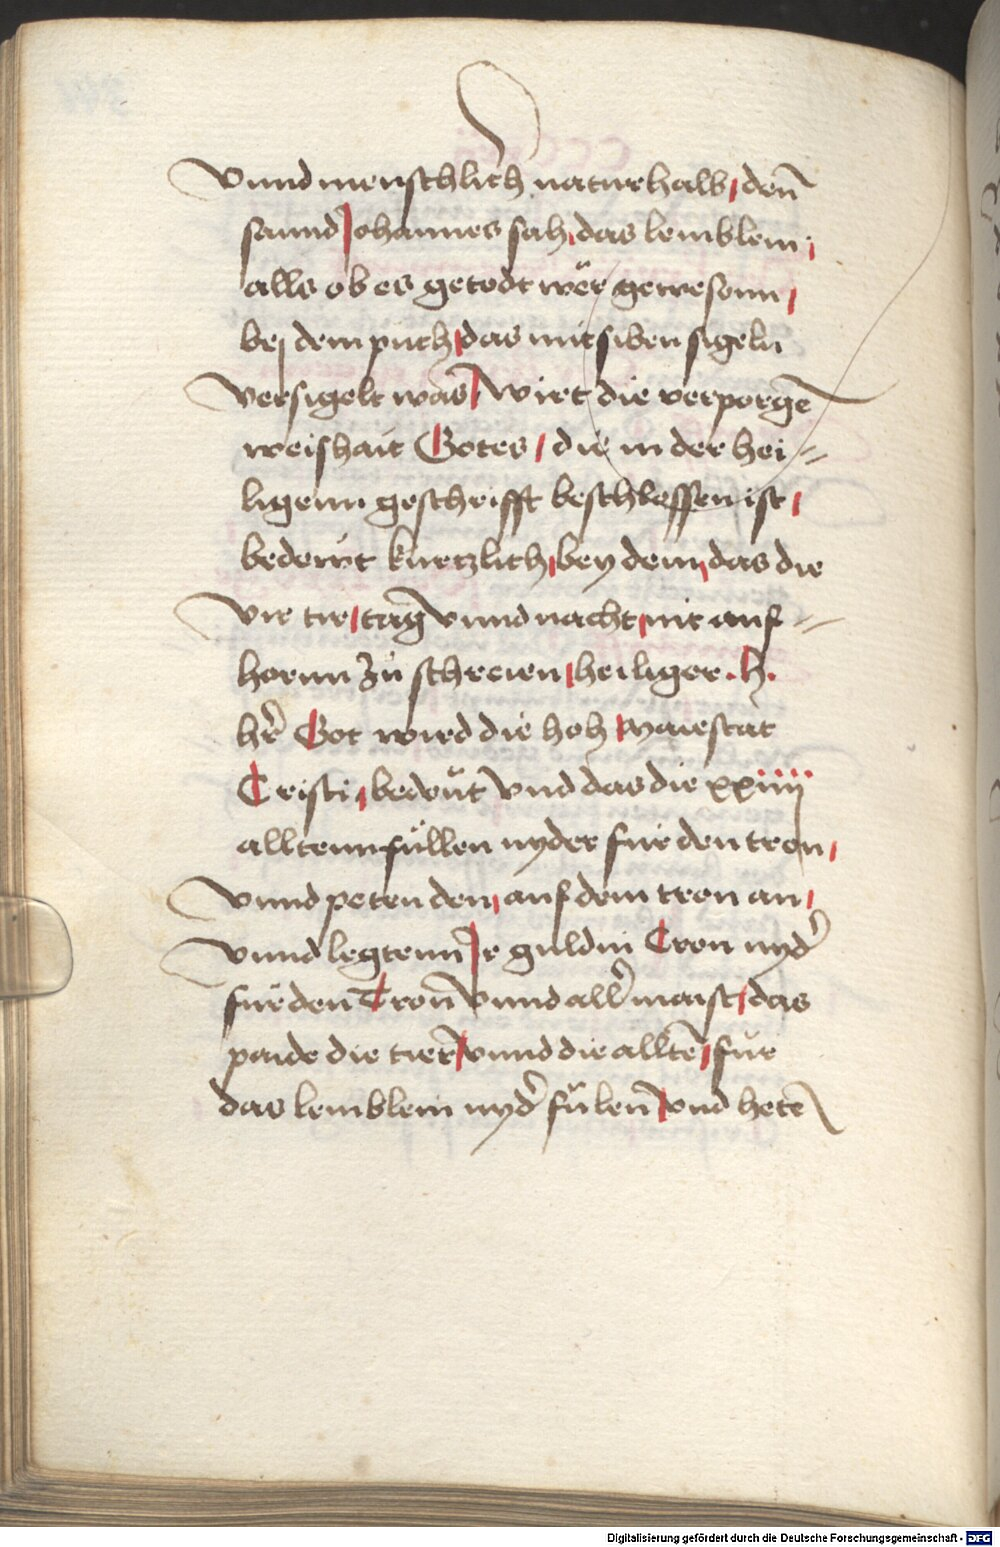 vnnd menschlich naturhalb / den̄
sannd Johannes sah / das lemblein /
alls ob es getodt wër gewesonn /
bej dem puch / das mit siben sigeln
versigelt was / Wirt die verporgē
weishait Gotes / die in der hei=
ligenn geschrifft beschlossen ist /
bedewt kurtzlich / bey dem / das die
vir tir / tag vnnd nacht / nit auf=
hornn zu schreien / heiliger .h.
hr̄ Got wird die hoh Maiestat
Cristi / bedeut vnd das die xxiiij
alltenn füllen nyder fur den tron /
vnnd peten den / auf dem tron an /
vnnd legtenn Ir guldin Cron nyd̄
fur den Tron vnnd all̄ maist / das
paide die tier / vnnd die alltē / fur
das lemblein nyd̄ fülen / vnd hetē
Digitalisierung gefördert durch die Deutsche Forschungsgemeinschaft - DFG